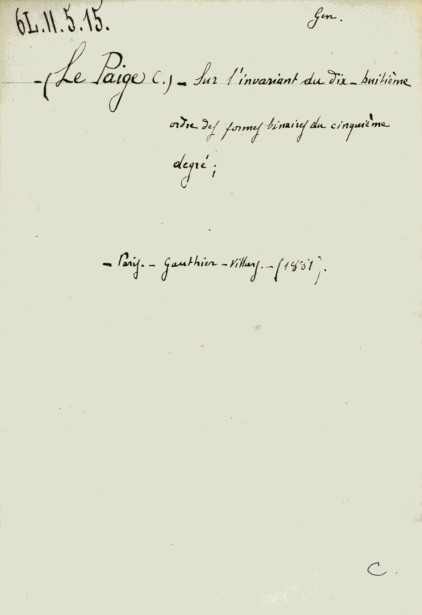 6L.II.5.15.
Gen.
-(Le Paige C.) - Sur l'invariant du dix-huitième
ordre des formes binaires du cinquième
degré;
- Paris. - Gauthier-Villars. - (1881).
C.